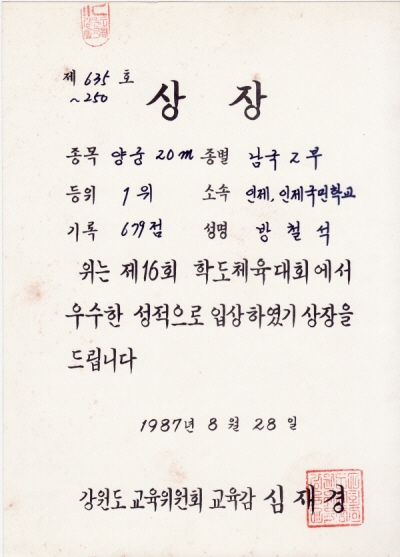 제 635 호
~250
상 장
종목 양궁 20m 종별 남국 2부
등위 1위 소속 인제, 인제국민학교
기록 679점 성명 방철석
위는 제16회 학도체육대회에서
우수한 성적으로 입상하였기 상장을
드립니다
1987년 8월 28일
강원도 교육위원회 교육감 심재경